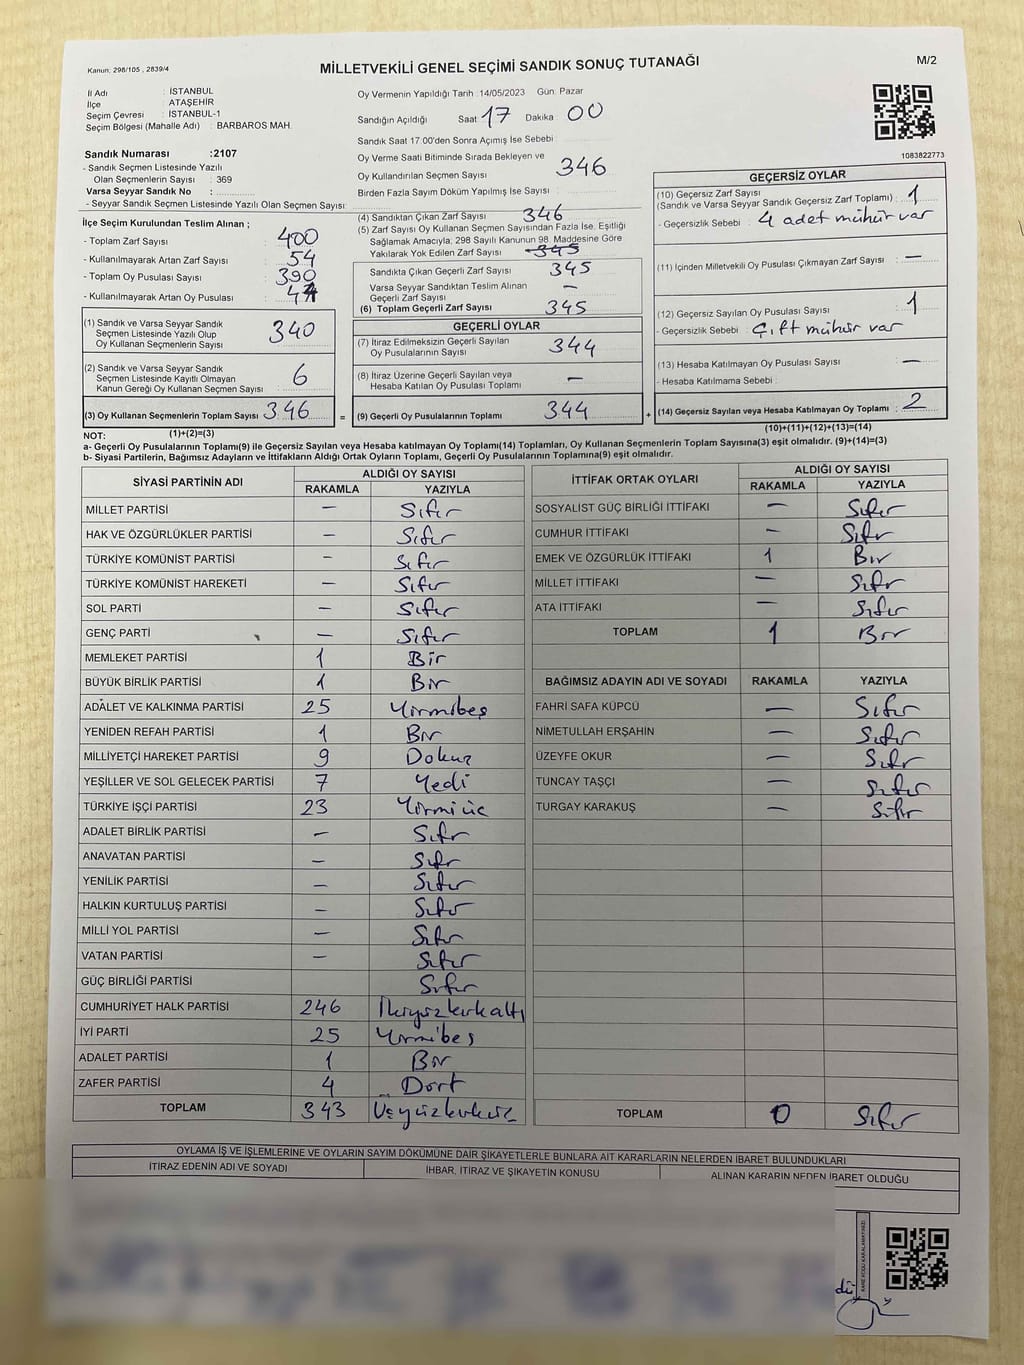 Kanun: 298/105 , 2839/4
MİLLETVEKİLİ GENEL SEÇİMİ SANDIK SONUÇ TUTANAĞI
M/2
İl Adı : İSTANBUL
İlçe : ATAŞEHİR
Seçim Çevresi : İSTANBUL-1
Seçim Bölgesi (Mahalle Adı) : BARBAROS MAH.
Oy Vermenin Yapıldığı Tarih :14/05/2023 Gün: Pazar
Sandığın Açıldığı Saat : 17 Dakika : 00
Sandık Saat 17:00'den Sonra Açımış İse Sebebi :
Sandık Numarası :2107
- Sandık Seçmen Listesinde Yazılı
Olan Seçmenlerin Sayısı : 369
Varsa Seyyar Sandık No :
- Seyyar Sandık Seçmen Listesinde Yazılı Olan Seçmen Sayısı:
Oy Verme Saati Bitiminde Sırada Bekleyen ve
Oy Kullandırılan Seçmen Sayısı : 346
Birden Fazla Sayım Döküm Yapılmış İse Sayısı :
1083822773
İlçe Seçim Kurulundan Teslim Alınan ;
- Toplam Zarf Sayısı : 400
- Kullanılmayarak Artan Zarf Sayısı : 54
- Toplam Oy Pusulası Sayısı : 390
- Kullanılmayarak Artan Oy Pusulası :
(1) Sandık ve Varsa Seyyar Sandık
Seçmen Listesinde Yazılı Olup
Oy Kullanan Seçmenlerin Sayısı : 340
(2) Sandık ve Varsa Seyyar Sandık
Seçmen Listesinde Kayıtlı Olmayan
Kanun Gereği Oy Kullanan Seçmen Sayısı : 6
(3) Oy Kullanan Seçmenlerin Toplam Sayısı : 346
(1)+(2)=(3)
(4) Sandıktan Çıkan Zarf Sayısı : 346
(5) Zarf Sayısı Oy Kullanan Seçmen Sayısından Fazla İse, Eşitliği
Sağlamak Amacıyla, 298 Sayılı Kanunun 98. Maddesine Göre
Yakılarak Yok Edilen Zarf Sayısı : 345
Sandıkta Çıkan Geçerli Zarf Sayısı : 345
Varsa Seyyar Sandıktan Teslim Alınan
Geçerli Zarf Sayısı : —
(6) Toplam Geçerli Zarf Sayısı : 345
GEÇERLİ OYLAR
(7) İtiraz Edilmeksizin Geçerli Sayılan
Oy Pusulalarının Sayısı : 344
(8) İtiraz Üzerine Geçerli Sayılan veya
Hesaba Katılan Oy Pusulası Toplamı : —
= (9) Geçerli Oy Pusulalarının Toplamı : 344
GEÇERSİZ OYLAR
(10) Geçersiz Zarf Sayısı
(Sandık ve Varsa Seyyar Sandık Geçersiz Zarf Toplamı) : 1
- Geçersizlik Sebebi : 4 adet mühür var
(11) İçinden Milletvekili Oy Pusulası Çıkmayan Zarf Sayısı : —
(12) Geçersiz Sayılan Oy Pusulası Sayısı : 1
- Geçersizlik Sebebi : Çift mühür var
(13) Hesaba Katılmayan Oy Pusulası Sayısı : —
- Hesaba Katılmama Sebebi :
+ (14) Geçersiz Sayılan veya Hesaba Katılmayan Oy Toplamı : 2
(10)+(11)+(12)+(13)=(14)
NOT:
a- Geçerli Oy Pusulalarının Toplamı(9) ile Geçersiz Sayılan veya Hesaba katılmayan Oy Toplamı(14) Toplamları, Oy Kullanan Seçmenlerin Toplam Sayısına(3) eşit olmalıdır. (9)+(14)=(3)
b- Siyasi Partilerin, Bağımsız Adayların ve İttifakların Aldığı Ortak Oyların Toplamı, Geçerli Oy Pusulalarının Toplamına(9) eşit olmalıdır.
SİYASİ PARTİNİN ADI ALDIĞI OY SAYISI
RAKAMLA YAZIYLA
MİLLET PARTİSİ — Sıfır
HAK VE ÖZGÜRLÜKLER PARTİSİ — Sıfır
TÜRKİYE KOMÜNİST PARTİSİ — Sıfır
TÜRKİYE KOMÜNİST HAREKETİ — Sıfır
SOL PARTİ — Sıfır
GENÇ PARTİ — Sıfır
MEMLEKET PARTİSİ 1 Bir
BÜYÜK BİRLİK PARTİSİ 1 Bir
ADALET VE KALKINMA PARTİSİ 25 Yirmibeş
YENİDEN REFAH PARTİSİ 1 Bir
MİLLİYETÇİ HAREKET PARTİSİ 9 Dokuz
YEŞİLLER VE SOL GELECEK PARTİSİ 7 Yedi
TÜRKİYE İŞÇİ PARTİSİ 23 Yirmiüç
ADALET BİRLİK PARTİSİ — Sıfır
ANAVATAN PARTİSİ — Sıfır
YENİLİK PARTİSİ — Sıfır
HALKIN KURTULUŞ PARTİSİ — Sıfır
MİLLİ YOL PARTİSİ — Sıfır
VATAN PARTİSİ — Sıfır
GÜÇ BİRLİĞİ PARTİSİ Sıfır
CUMHURİYET HALK PARTİSİ 246 İkiyüzkırkaltı
İYİ PARTİ 25 Yirmibeş
ADALET PARTİSİ 1 Bir
ZAFER PARTİSİ 4 Dört
TOPLAM 343 Üçyüzkırküç
İTTİFAK ORTAK OYLARI ALDIĞI OY SAYISI
RAKAMLA YAZIYLA
SOSYALİST GÜÇ BİRLİĞİ İTTİFAKI — Sıfır
CUMHUR İTTİFAKI — Sıfır
EMEK VE ÖZGÜRLÜK İTTİFAKI 1 Bir
MİLLET İTTİFAKI — Sıfır
ATA İTTİFAKI — Sıfır
TOPLAM 1 Bir
BAĞIMSIZ ADAYIN ADI VE SOYADI RAKAMLA YAZIYLA
FAHRİ SAFA KÜPCÜ — Sıfır
NİMETULLAH ERŞAHİN — Sıfır
ÜZEYFE OKUR — Sıfır
TUNCAY TAŞÇI — Sıfır
TURGAY KARAKUŞ — Sıfır
TOPLAM 0 Sıfır
OYLAMA İŞ VE İŞLEMLERİNE VE OYLARIN SAYIM DÖKÜMÜNE DAİR ŞİKAYETLERLE BUNLARA AİT KARARLARIN NELERDEN İBARET BULUNDUKLARI
İTİRAZ EDENİN ADI VE SOYADI İHBAR, İTİRAZ VE ŞİKAYETİN KONUSU ALINAN KARARIN NEDEN İBARET OLDUĞU
KARE KODU KARALAMAYINIZ!